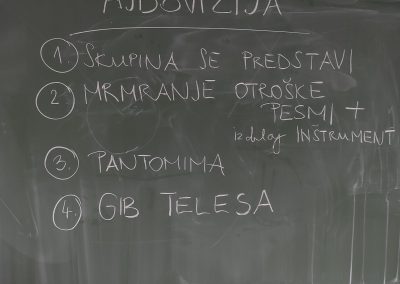 AJDOVIZIJA
1. SKUPINA SE PREDSTAVI
2. MRMRANJE OTROŠKE
PESMI +
izdelaj INŠTRUMENT
3. PANTOMIMA
4. GIB TELESA